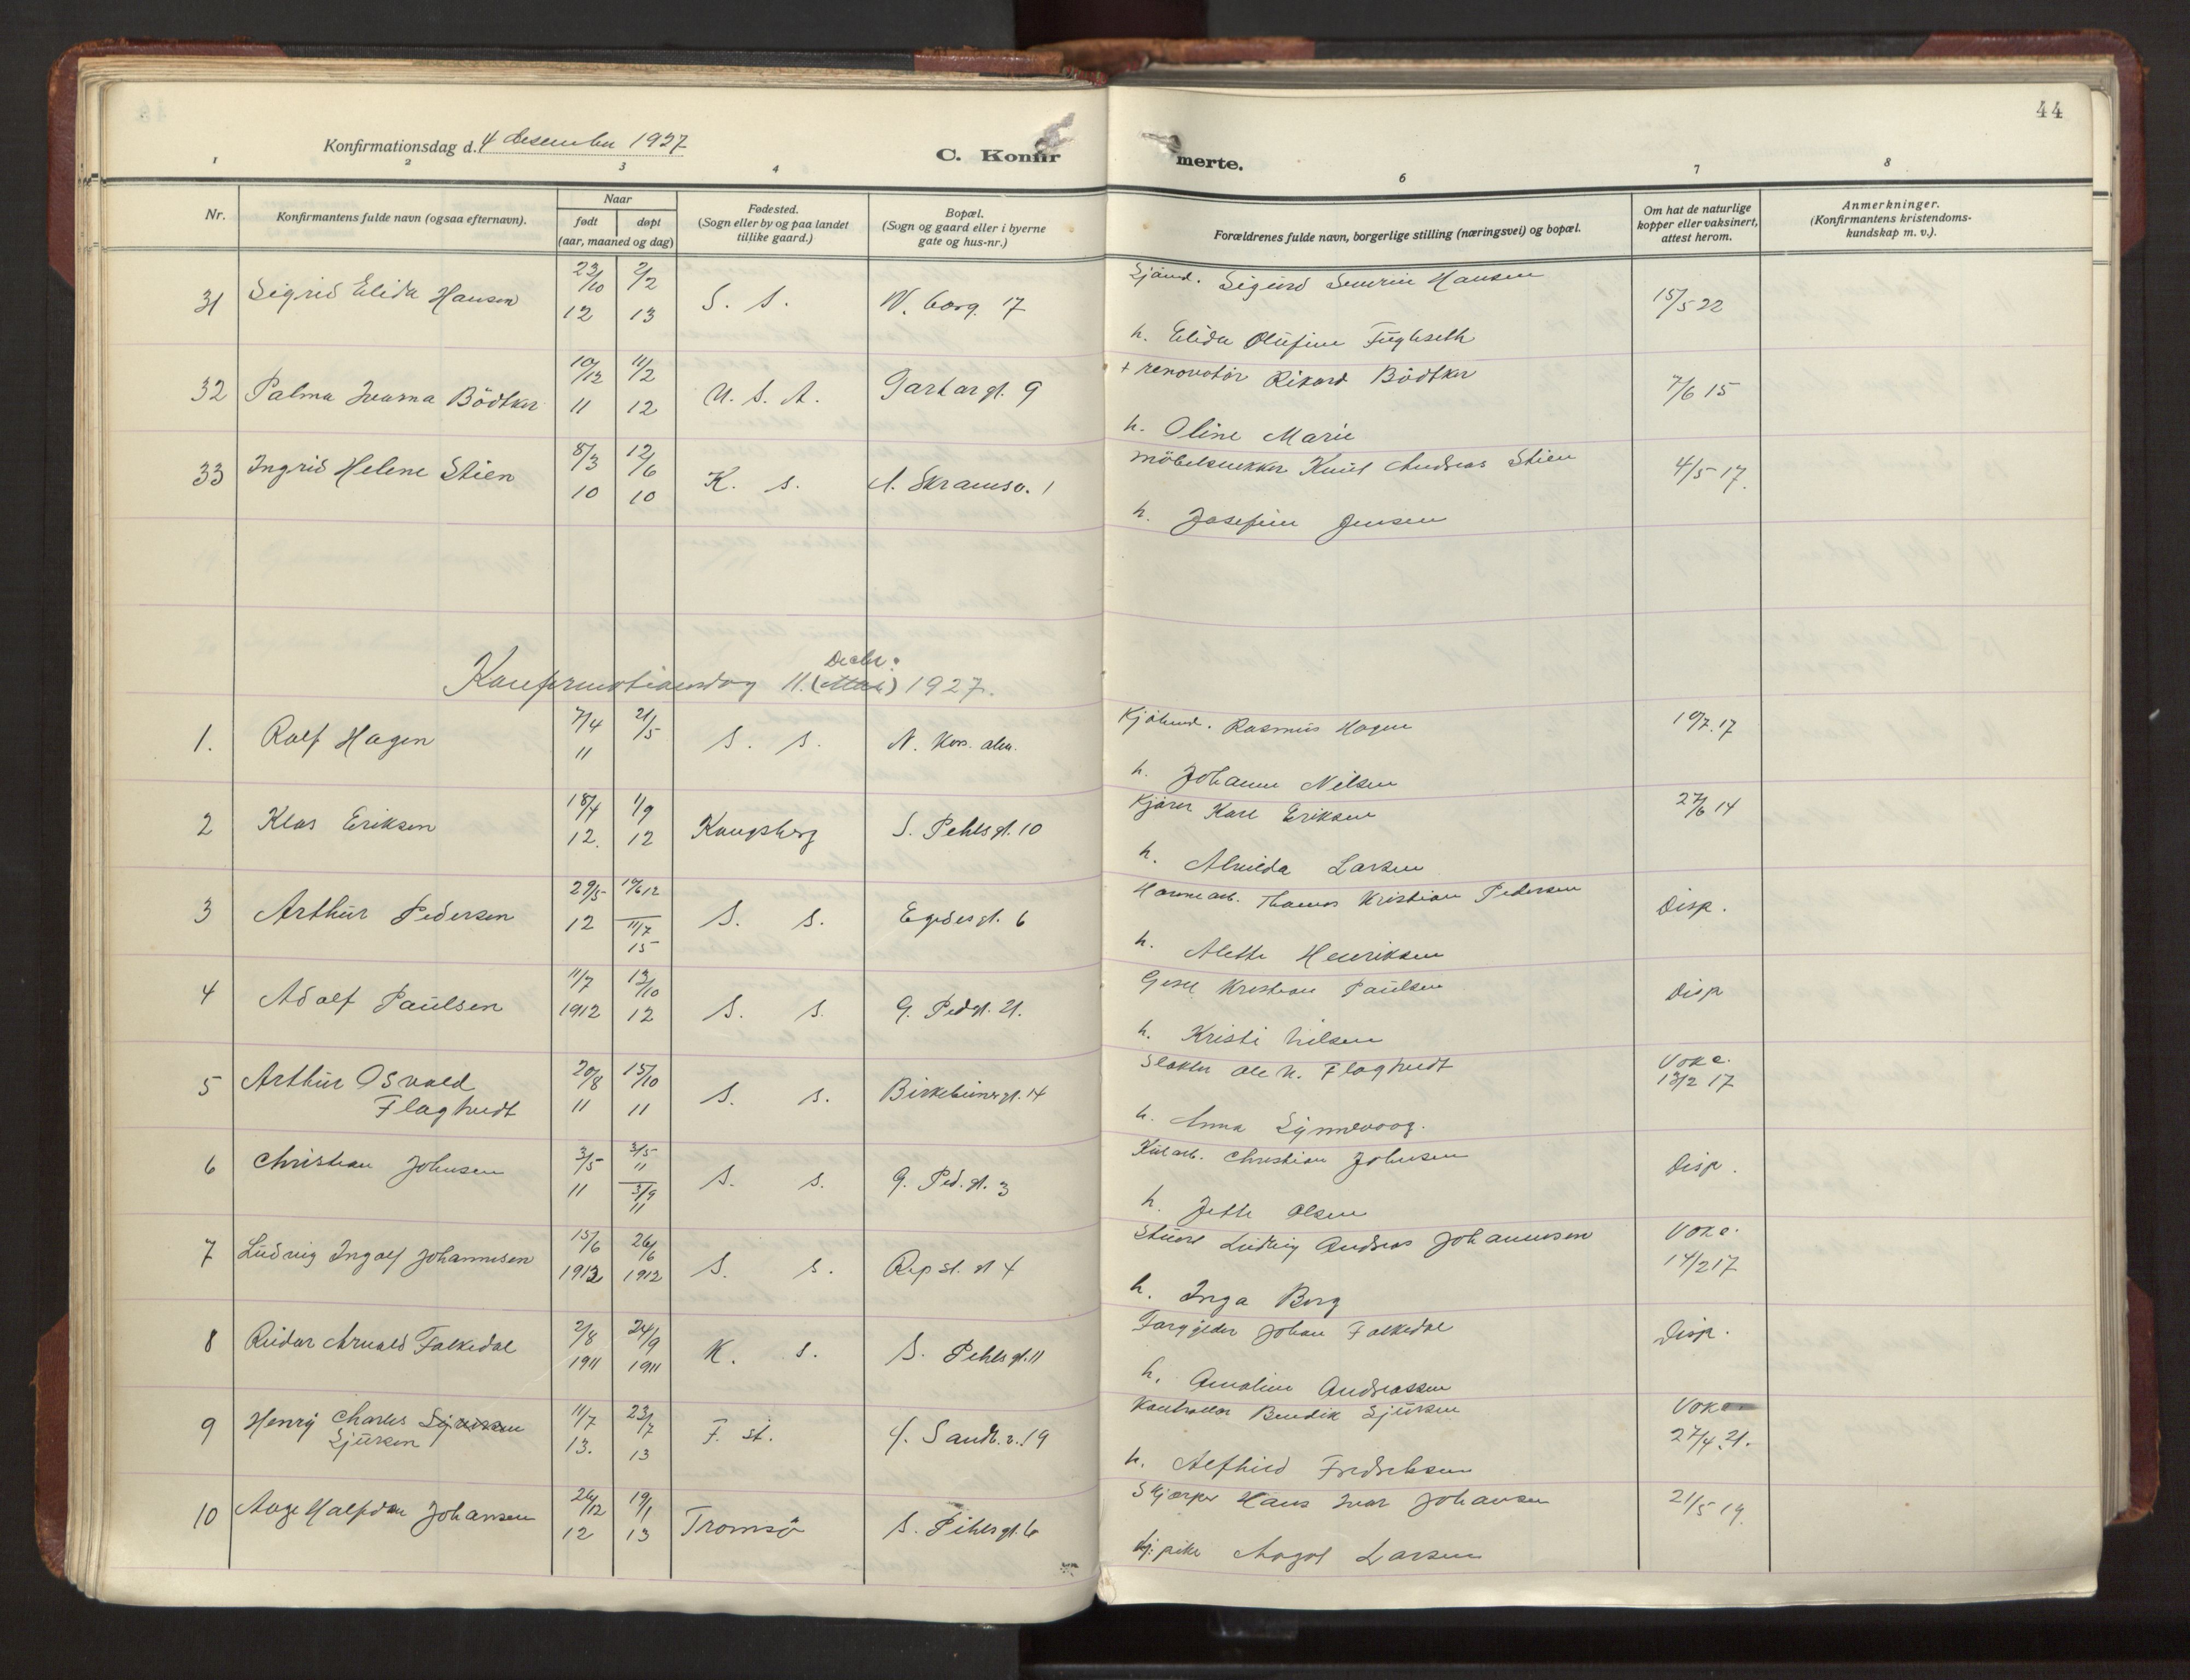 44
Konfirmationsdag d. 4 desember 1927
C. Konfirmerte.
1 2 3 4 6 7 8
Nr.
Konfirmantens fulde navn (ogsaa efternavn).
Naar
født døpt
(aar, maaned og dag)
Fødested.
(Sogn eller by og paa landet
tillike gaard.)
Bopæl.
(Sogn og gaard eller i byerne
gate og hus-nr.)
Forældrenes fulde navn, borgerlige stilling (næringsvei) og bopæl.
Om hat de naturlige
kopper eller vaksinert,
attest herom.
Anmerkninger.
(Konfirmantens kristendoms-
kundskap m. v.).
31 Sigrid Elida Hansen 23/10 12 2/2 13 S. S. W. borg. 17 Sjömd. Sigurd Severin Hansen 15/5 22
h. Elida Olufine
32 Palma Bödtker 10/12 11 11/2 12 U. S. A. 9 + renovatör Rikard Bödtker 7/6 15
h. Oline Marie
33 Ingrid Helene Stien 8/3 10 12/6 10 K. s. 1 Möbelsnekker Knut Andreas Stien 4/5 17.
h. Josefine Jensen
Konfirmationsdag 11. (Mai) Decbr. 1927.
1. Rolf Hagen 7/4 11 21/5 S. S. N. Kors. alm. Rasmus Hagen 17
h. Johanne Nilsen
2 Klas Eriksen 18/4 12. 1/9 12 Kongsberg S. Pehlsgt. 10 Kjörer Karl Eriksen 27/6 14
h. Almilda Larsen
3 Arthur Pedersen 29/5 12 12 11/7 15 S. S. Egedesgt. 6 Havnearb. Thomas Kristian Pedersen Disp.
h. Alette Henriksen
4 Adolf Paulsen 11/7 1912 13/10 12 S. S. G. Pedgt. 21. Kristian Paulsen Disp
h. Kristi Nilsen
5 Arthur Osvald
Flagtvedt 20/8 11 15/10 11 S. S. Birkebeinergt. 14 Slakter Ole N. Flagtvedt Vokc.
13/2 17
h. Anna
6 Christian Johnsen 3/5 11 3/5 11 3/9 11 S. S. G. Ped. gt. 3 Kularb. Christian Johnsen Disp.
h. Jette Olsen
7 Ludvig Ingolf Johannesen 15/6 1912 26/6 1912 S. S. Rep sl. gt 4 Ludvig Andreas Johannesen Vokc.
14/2 17
h. Inga Borg
8 Reidar Arnold Falkedal 2/8 1911 24/9 1911 K. S. S. Pehlsgt. 11 Johan Falkedal Disp.
h. Amaline Andreassen
9 Henry Charles
Sjursen 11/7 13. 23/7 13 F. st. 19 Kontrollör Bendik Sjursen Vokc
27/4 21.
h. Alfhild Fredriksen
10 Aage Halfdan Johansen 26/12 12 19/1 13 Tromsö S. Pihlsgt. 6 Hans Ivar Johansen 21/5 19.
pike Aagot Larsen